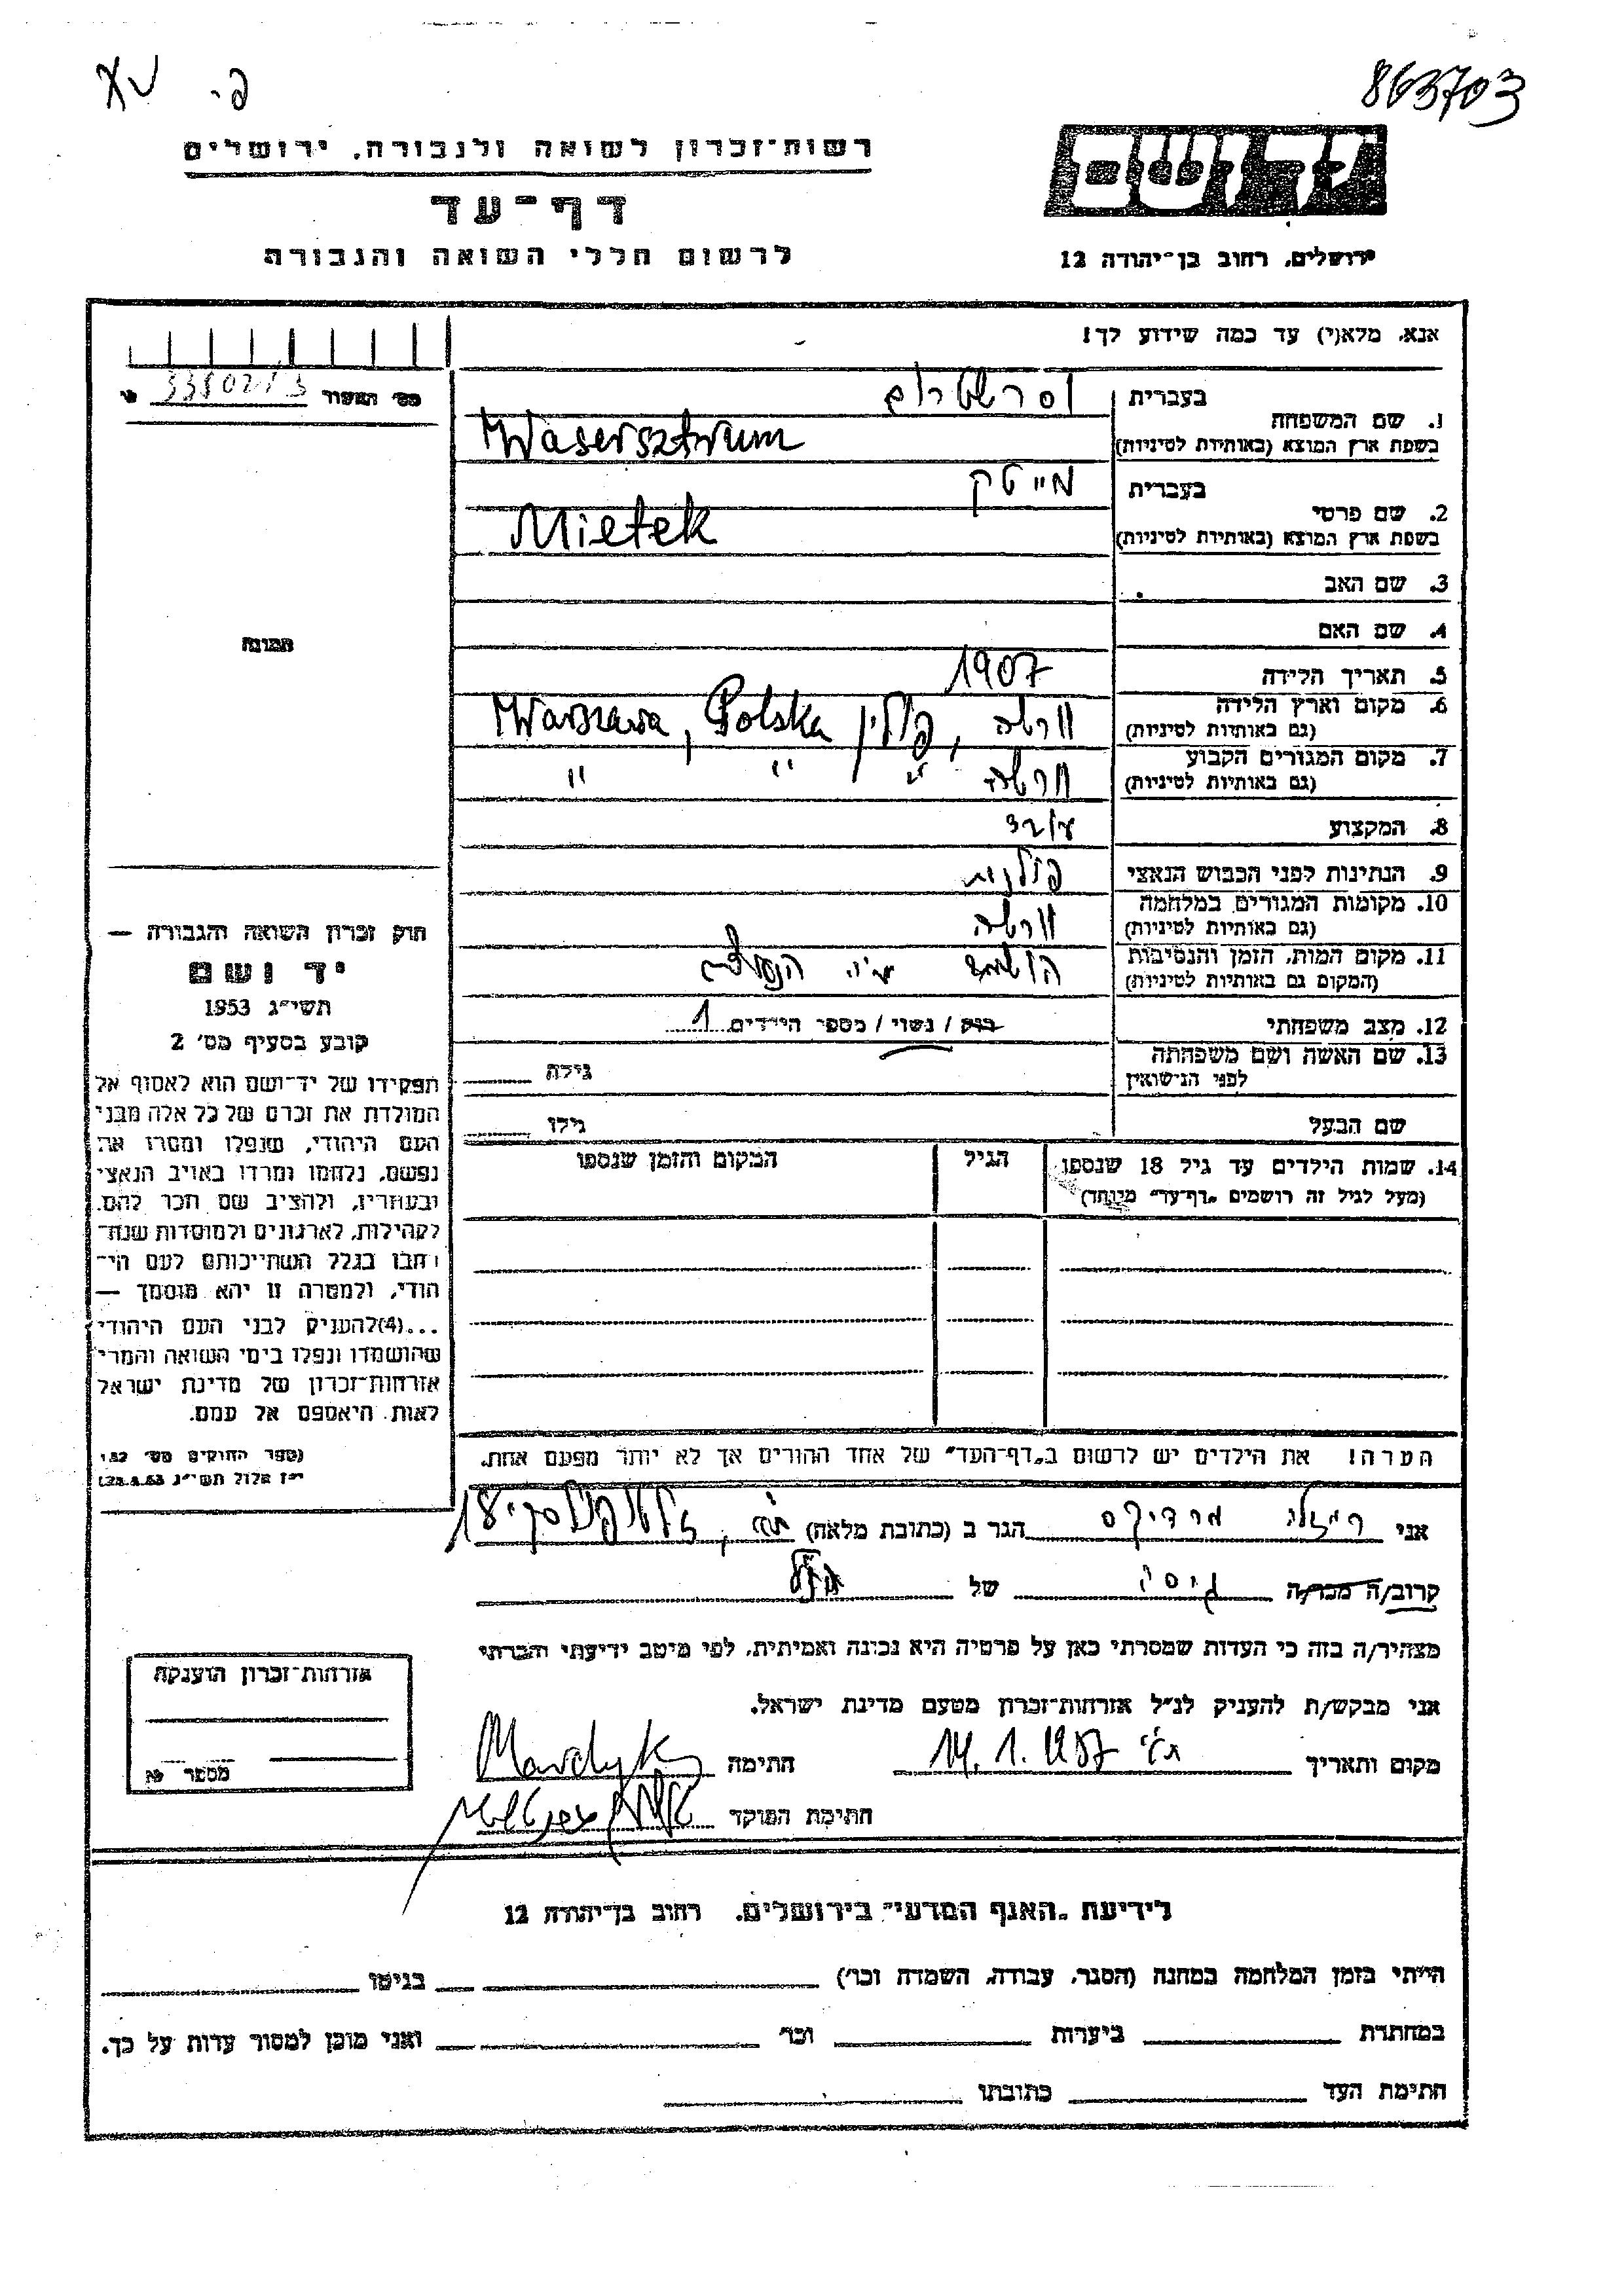 863703
רשות־זכרון לשואה ולגבורה, ירושלים
דף־עד
לרשום חללי השואה והגבורה
יד ושם
ירושלים, רחוב בן־יהודה 12
אנא, מלא(י) עד כמה שידוע לך!
1. שם המשפחה
בעברית וסרשטרום
בשפת ארץ המוצא (באותיות לטיניות) Wasersztrum
2. שם פרטי
בעברית מייטק
בשפת ארץ המוצא (באותיות לטיניות) Mietek
3. שם האב
4. שם האם
5. תאריך הלידה 1907
6. מקום וארץ הלידה (גם באותיות לטיניות) ורשה, פולין Warszawa, Polska
7. מקום המגורים הקבוע (גם באותיות לטיניות) ורשה " " "
8. המקצוע
9. הנתינות לפני הכבוש הנאצי פולנית
10. מקומות המגורים במלחמה (גם באותיות לטיניות) ורשה
11. מקום המות, הזמן והנסיבות (המקום גם באותיות לטיניות) הושמד ע"י הנאצים
12. מצב משפחתי רווק / נשוי / מספר הילדים 1
13. שם האשה ושם משפחתה לפני הנישואין גילה
שם הבעל גילו
14. שמות הילדים עד גיל 18 שנספו הגיל המקום והזמן שנספו
(מעל לגיל זה רושמים "דף־עד" מיוחד)
הערה! את הילדים יש לרשום ב"דף־העד" של אחד ההורים אך לא יותר מפעם אחת.
מס' השעור 338021/3
תמונה
חוק זכרון השואה והגבורה —
יד ושם
תשי"ג 1953
קובע בסעיף מס' 2
תפקידו של יד־ושם הוא לאסוף אל
המולדת את זכרם של כל אלה מבני
העם היהודי, שנפלו ומסרו את
נפשם, נלחמו ומרדו באויב הנאצי
ובעוזריו, ולהציב שם וזכר להם,
לקהילות, לארגונים ולמוסדות שנח־
רבו בגלל השתייכותם לעם הי־
הודי, ולמטרה זו יהא מוסמך —
...(4)להעניק לבני העם היהודי
שהושמדו ונפלו בימי השואה והמרי
אזרחות־זכרון של מדינת ישראל
לאות היאספם אל עמם.
(ספר החוקים מס' 132
י"ז אלול תשי"ג 28.8.53)
אני מרדיקס הגר ב (כתובת מלאה) 18
קרוב/ה מכר/ה גיסה של
מצהיר/ה בזה כי העדות שמסרתי כאן על פרטיה היא נכונה ואמיתית, לפי מיטב ידיעתי והכרתי
אני מבקש/ת להעניק לנ"ל אזרחות־זכרון מטעם מדינת ישראל.
מקום ותאריך 14.1.1957 חתימה
חתימת הפוקד
אזרחות־זכרון הוענקה
מספר
לידיעת "האגף המדעי" בירושלים, רחוב בן־יהודה 12
הייתי בזמן המלחמה במחנה (הסגר, עבודה, השמדה וכו') בגיטו
במחתרת ביערות וכו' ואני מוכן למסור עדות על כך.
חתימת העד כתובתו